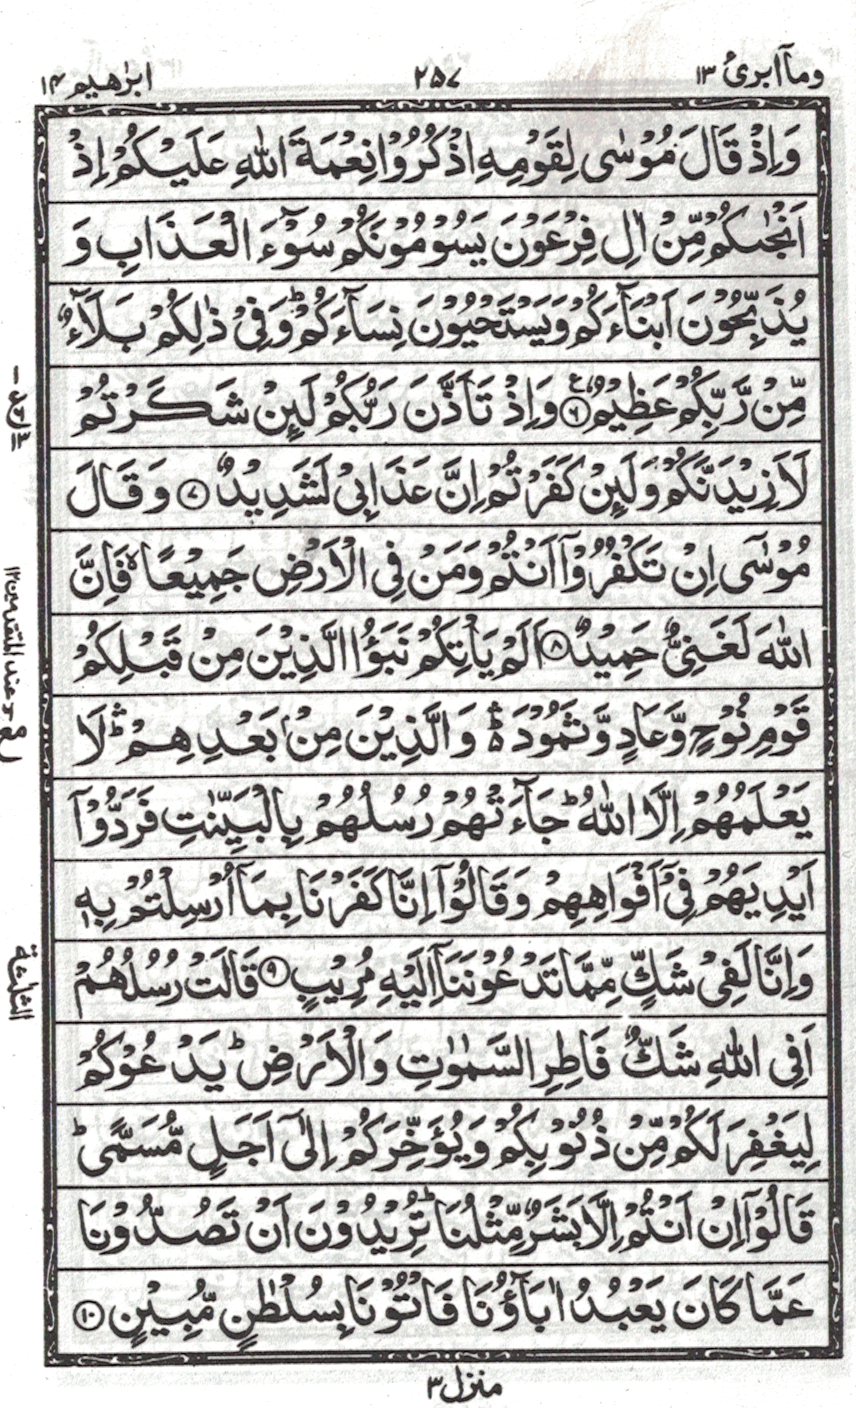 وماۤ ابرئ ١٣
٢٥٧
ابرٰهيم ١٤
وَاِذْ قَالَ مُوْسٰى لِقَوْمِهِ اذْكُرُوْا نِعْمَةَ اللّٰهِ عَلَيْكُمْ اِذْ
اَنْجٰىكُمْ مِّنْ اٰلِ فِرْعَوْنَ يَسُوْمُوْنَكُمْ سُوْٓءَ الْعَذَابِ وَ
يُذَبِّحُوْنَ اَبْنَآءَكُمْ وَيَسْتَحْيُوْنَ نِسَآءَكُمْ ؕ وَفِيْ ذٰلِكُمْ بَلَآءٌ
مِّنْ رَّبِّكُمْ عَظِيْمٌ ﴿٦﴾ وَاِذْ تَاَذَّنَ رَبُّكُمْ لَىِٕنْ شَكَرْتُمْ
لَاَزِيْدَنَّكُمْ وَلَىِٕنْ كَفَرْتُمْ اِنَّ عَذَابِيْ لَشَدِيْدٌ ﴿٧﴾ وَقَالَ
مُوْسٰٓى اِنْ تَكْفُرُوْٓا اَنْتُمْ وَمَنْ فِى الْاَرْضِ جَمِيْعًا ۙ فَاِنَّ
اللّٰهَ لَغَنِيٌّ حَمِيْدٌ ﴿٨﴾ اَلَمْ يَاْتِكُمْ نَبَؤُا الَّذِيْنَ مِنْ قَبْلِكُمْ
قَوْمِ نُوْحٍ وَّعَادٍ وَّثَمُوْدَ ۛؕ وَالَّذِيْنَ مِنْۢ بَعْدِهِمْ ۛؕ لَا
يَعْلَمُهُمْ اِلَّا اللّٰهُ ؕ جَآءَتْهُمْ رُسُلُهُمْ بِالْبَيِّنٰتِ فَرَدُّوْٓا
اَيْدِيَهُمْ فِيْٓ اَفْوَاهِهِمْ وَقَالُوْٓا اِنَّا كَفَرْنَا بِمَآ اُرْسِلْتُمْ بِهٖ
وَاِنَّا لَفِيْ شَكٍّ مِّمَّا تَدْعُوْنَنَآ اِلَيْهِ مُرِيْبٍ ﴿٩﴾ قَالَتْ رُسُلُهُمْ
اَفِى اللّٰهِ شَكٌّ فَاطِرِ السَّمٰوٰتِ وَالْاَرْضِ ؕ يَدْعُوْكُمْ
لِيَغْفِرَ لَكُمْ مِّنْ ذُنُوْبِكُمْ وَيُؤَخِّرَكُمْ اِلٰٓى اَجَلٍ مُّسَمًّى ؕ
قَالُوْٓا اِنْ اَنْتُمْ اِلَّا بَشَرٌ مِّثْلُنَا ؕ تُرِيْدُوْنَ اَنْ تَصُدُّوْنَا
عَمَّا كَانَ يَعْبُدُ اٰبَآؤُنَا فَاْتُوْنَا بِسُلْطٰنٍ مُّبِيْنٍ ﴿١٠﴾
الثلٰثة
منزل ٣